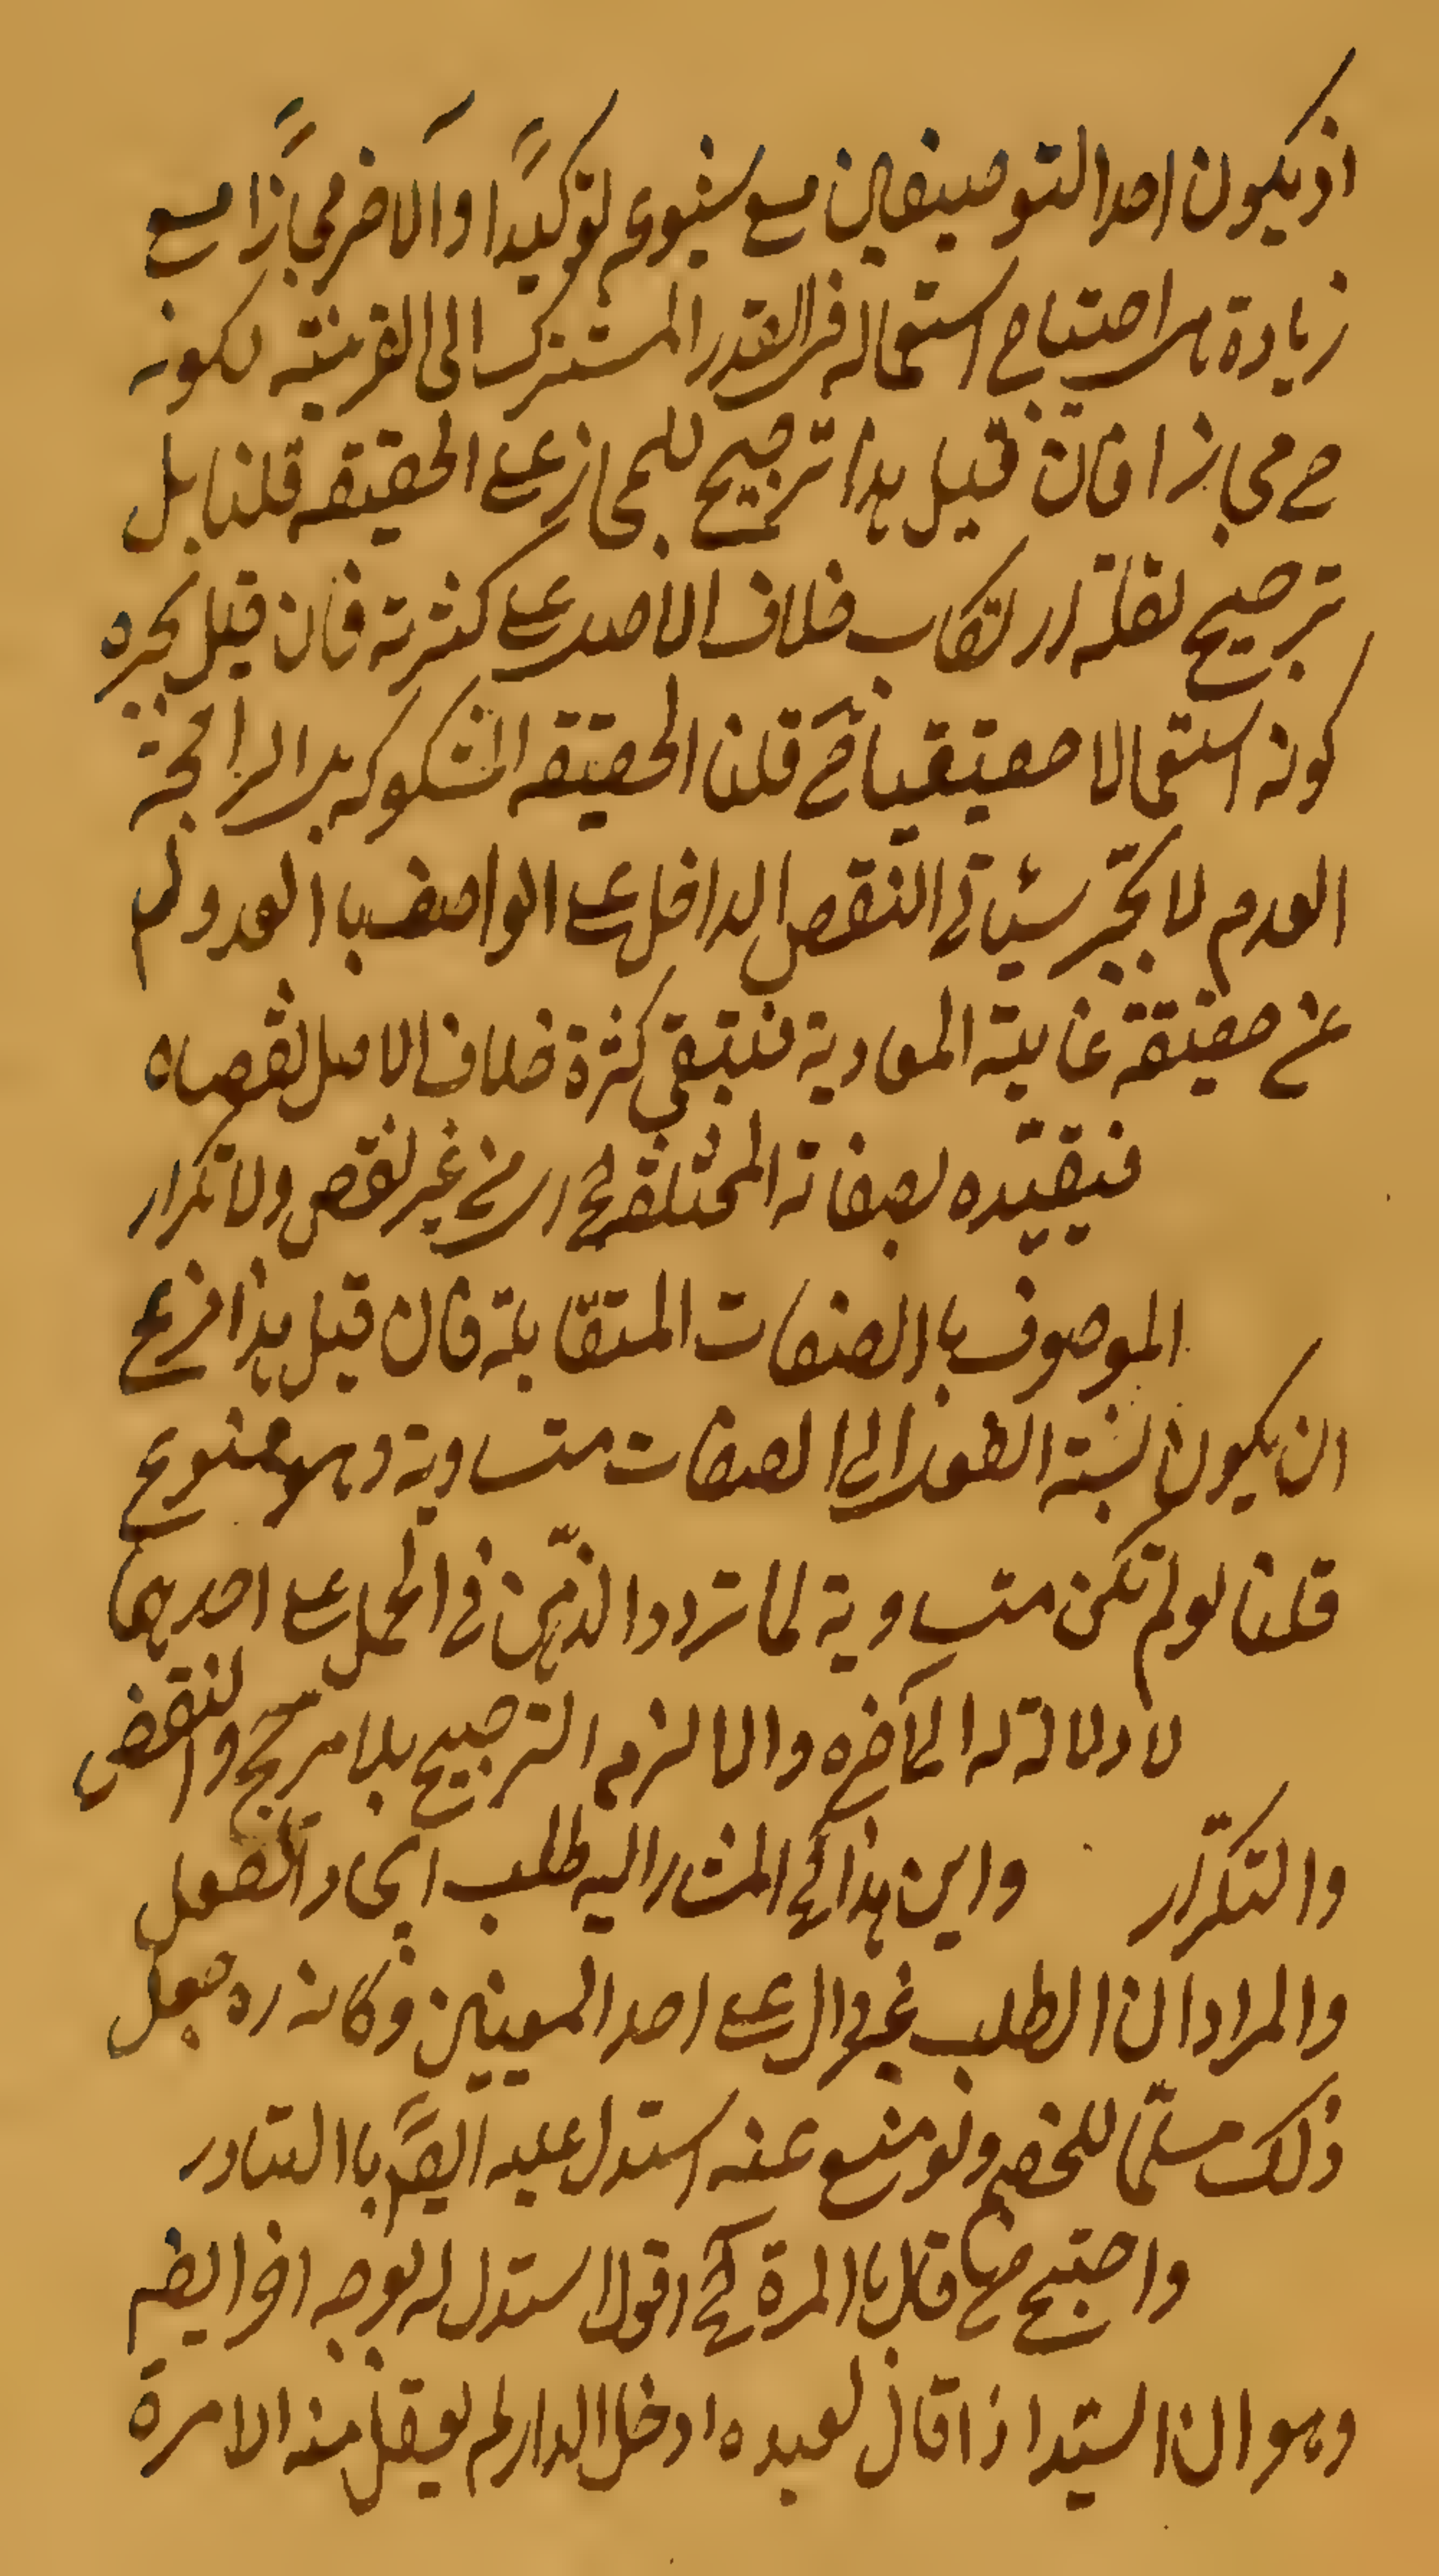 اذ يكون احد التوصيفين مع شيوعه توكيدًا والاخر مجازًا مع
زيادة هي احتياج استعماله في القدر المشترك الى القرينة لكونه
ح مجازا فان قيل هذا ترجيح للمجاز على الحقيقه قلنا بل
ترجيح لقلة ارتكاب خلاف الاصل على كثرته فان قيل يجبره
كونه استعمالا حقيقيا ح قلنا الحقيقه المشكوكه بل الراجحة
العدم لا يجبر شيئا في النقص الداخل على الواصف با العدول
عن حقيقة غايته المعادية فتبقى كثرة خلاف الاصل
فيقيّده بصفاته المختلفة الخ اى من غير نقص ولا تكرار
الموصوف با الصفات المتقابلة فان قيل هذا فرع
ان يكون نسبة الفعل الى الصفات متساوية وهو ممنوع
قلنا لو لم تكن متساوية لما تردد الذهن فى الحمل على احدهما
لا دلالة له الخ آخره والا لزم الترجيح بلا مرجح والنقض
والتكرّار واين هذا الخ المشار اليه طلب ايجاد الفعل
والمراد ان الطلب غير دال على احد المعينين وكانه ره جعل
ذلك مسلّما للخصم ولو منع عنه استدل عليه ايضًا با التبادر
واحتج من قال با المرة الخ اقول استدل له بوجه اخر ايضم
وهو ان السيّد اذا قال لعبده ادخل الدار لم يعقل منه الا مرة